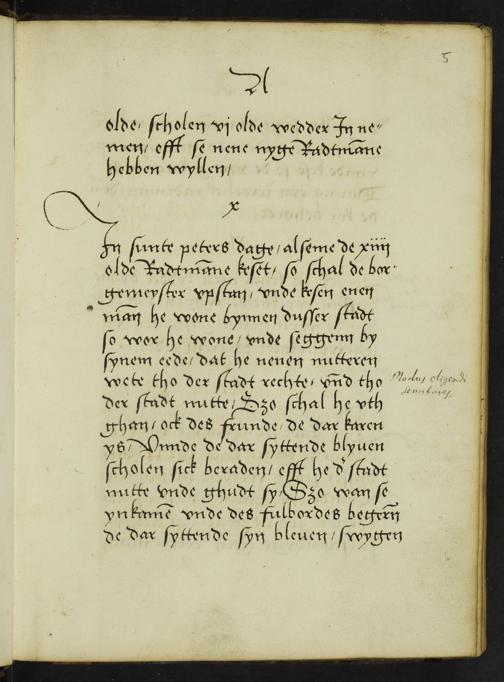 5
A
olde, scholen vj olde wedder In ne-
men, efft se nene nyge Radtmāne
hebben wyllen,
x
In sunte peters dage, alseme de xiiij
olde Radtmāne keset, so schal de bor-
gemeyster vpstan, vnde kesen enen
man he wone bynnen dusser stadt
so wor he wone, vnde seggenn by
synem eede, dat he nenen nutteren
wete tho der stadt rechte, vnd tho
der stadt nutte, Szo schal he vth
ghan, ock des frunde, de dar karen
ys, Vnnde de dar syttende blyuen
scholen sick beraden, efft he d' stadt
nutte vnde ghudt sy, Szo wan se
ynkamē vnde des fulbordes begern
de dar syttende syn bleuen, swygen
Modus eligendi